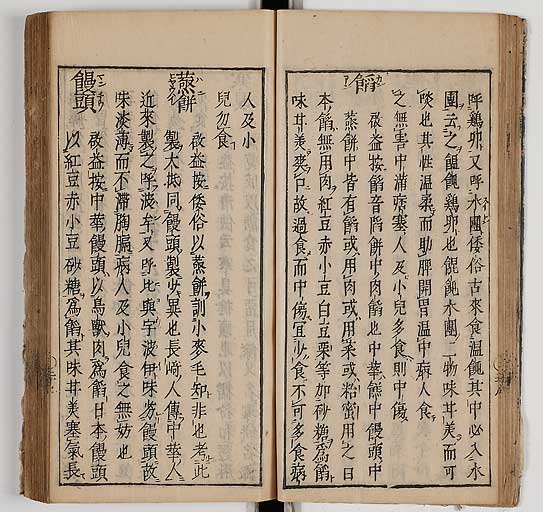 呼鶏卵又呼水團倭俗古來食溫飩其中必入水
團云之餛飩鶏卵也餛飩水團二物味甘美而可
啖也其性溫柔而助脾開胃溫中病人食
之無害中滿病塞人及小兒多食則中傷
餡
啟益按餡音陷餅中肉餡也中華餅中饅頭中
蒸餅中皆有餡或用肉或用菜或粘蜜用之日
本餡無用肉紅豆赤小豆白豆栗等加砂糖為餡
味甘美爽口故過食而中傷宜少食不可多食病
人及小
兒勿食
蒸餅
啟益按倭俗以蒸餅訓小麥毛知非也考此
製大抵同饅頭製少異也長崎人傳中華人
近來製之呼波牟又呼比與宇波伊味劣饅頭故
味淡薄而不滯胸膈病人及小兒食之無妨也
饅頭
啟益按中華饅頭以鳥獸肉為餡日本饅頭
以紅豆赤小豆砂糖為餡其味甘美塞氣長